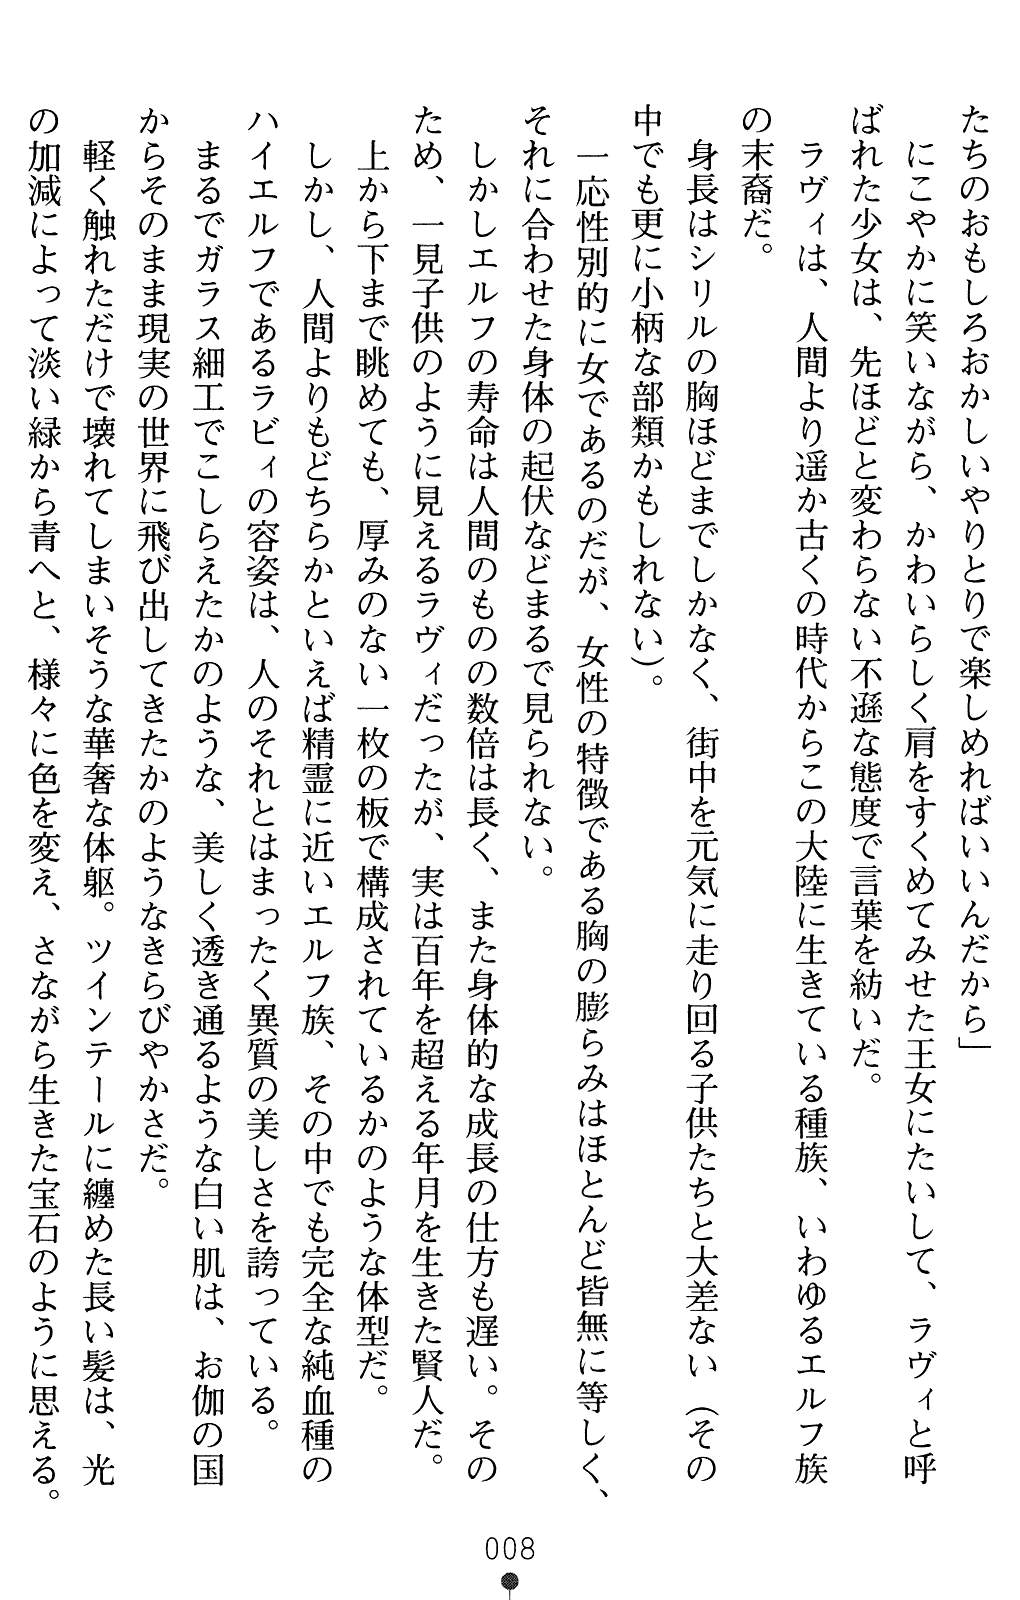 たちのおもしろおかしいやりとりで楽しめればいいんだから」
にこやかに笑いながら、かわいらしく肩をすくめてみせた王女にたいして、ラヴィと呼
ばれた少女は、先ほどと変わらない不遜な態度で言葉を紡いだ。
ラヴィは、人間より遥か古くの時代からこの大陸に生きている種族、いわゆるエルフ族
の末裔だ。
身長はシリルの胸ほどまでしかなく、街中を元気に走り回る子供たちと大差ない（その
中でも更に小柄な部類かもしれない）。
一応性別的に女であるのだが、女性の特徴である胸の膨らみはほとんど皆無に等しく、
それに合わせた身体の起伏などまるで見られない。
しかしエルフの寿命は人間のものの数倍は長く、また身体的な成長の仕方も遅い。その
ため、一見子供のように見えるラヴィだったが、実は百年を超える年月を生きた賢人だ。
上から下まで眺めても、厚みのない一枚の板で構成されているかのような体型だ。
しかし、人間よりもどちらかといえば精霊に近いエルフ族、その中でも完全な純血種の
ハイエルフであるラビィの容姿は、人のそれとはまったく異質の美しさを誇っている。
まるでガラス細工でこしらえたかのような、美しく透き通るような白い肌は、お伽の国
からそのまま現実の世界に飛び出してきたかのようなきらびやかさだ。
軽く触れただけで壊れてしまいそうな華奢な体躯。ツインテールに纏めた長い髪は、光
の加減によって淡い緑から青へと、様々に色を変え、さながら生きた宝石のように思える。
008